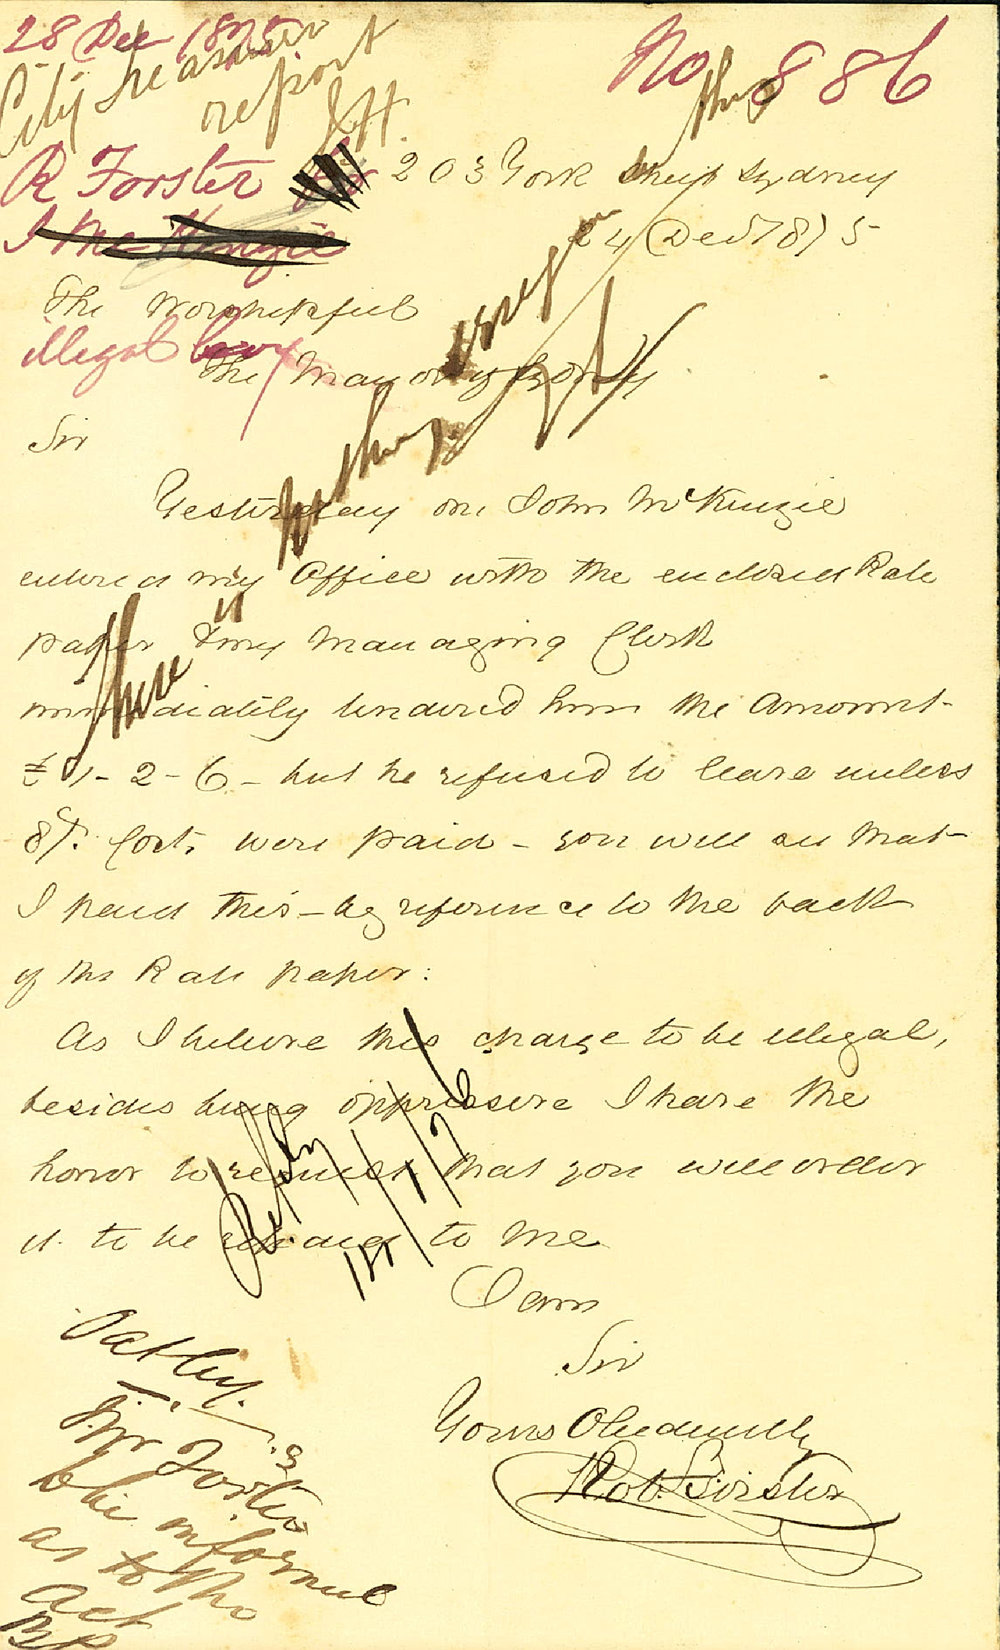 28 Dec 1875
No 886
City Treasurer
report
R Forster
203 York Street Sydney
24 Dec 1875
J McKenzie
The Worshipful
illegal levy
The Mayor of Sydney
Sir
Yesterday one John McKenzie
entered my Office with the enclosed Rate
paper & my Managing Clerk
immediately tendered him the Amount
£1-2-6 - but he refused to leave unless
8/. Cost, were paid - you will see that
I paid this - by reference to the back
of the Rate paper:
As I believe this charge to be illegal,
besides being oppressive I have the
honor to request that you will order
it to be returned to me
I am
Sir
Yours Obediently
Rob. Forster
Reply
1/76
Mr Forster
be informed
as to the
Act
There is